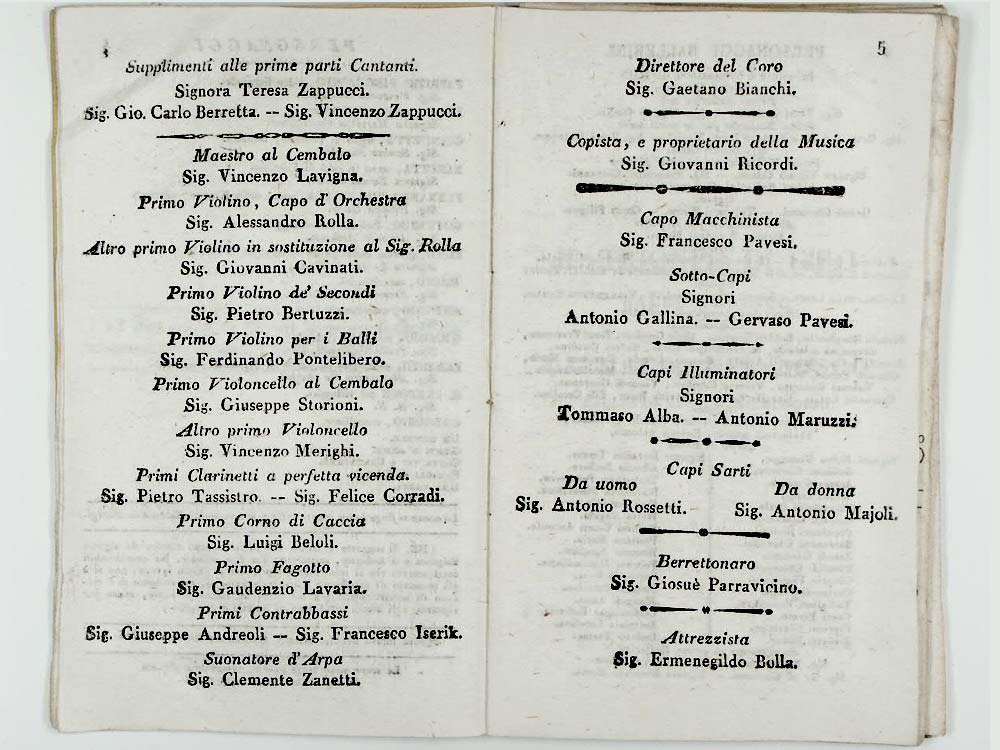 4
Supplimenti alle prime parti Cantanti.
Signora Teresa Zappucci.
Sig. Gio. Carlo Berretta. -- Sig. Vincenzo Zappucci.
Maestro al Cembalo
Sig. Vincenzo Lavigna.
Primo Violino, Capo d'Orchestra
Sig. Alessandro Rolla.
Altro primo Violino in sostituzione al Sig. Rolla
Sig. Giovanni Cavinati.
Primo Violino de' Secondi
Sig. Pietro Bertuzzi.
Primo Violino per i Balli
Sig. Ferdinando Pontelibero.
Primo Violoncello al Cembalo
Sig. Giuseppe Storioni.
Altro primo Violoncello
Sig. Vincenzo Merighi.
Primi Clarinetti a perfetta vicenda.
Sig. Pietro Tassistro. -- Sig. Felice Corradi.
Primo Corno di Caccia
Sig. Luigi Beloli.
Primo Fagotto
Sig. Gaudenzio Lavaria.
Primi Contrabbassi
Sig. Giuseppe Andreoli -- Sig. Francesco Iserik.
Suonatore d'Arpa
Sig. Clemente Zanetti.
5
Direttore del Coro
Sig. Gaetano Bianchi.
Copista, e proprietario della Musica
Sig. Giovanni Ricordi.
Capo Macchinista
Sig. Francesco Pavesi.
Sotto-Capi
Signori
Antonio Gallina. -- Gervaso Pavesi.
Capi Illuminatori
Signori
Tommaso Alba. -- Antonio Maruzzi.
Capi Sarti
Da uomo
Sig. Antonio Rossetti.
Da donna
Sig. Antonio Majoli.
Berrettonaro
Sig. Giosuè Parravicino.
Attrezzista
Sig. Ermenegildo Bolla.